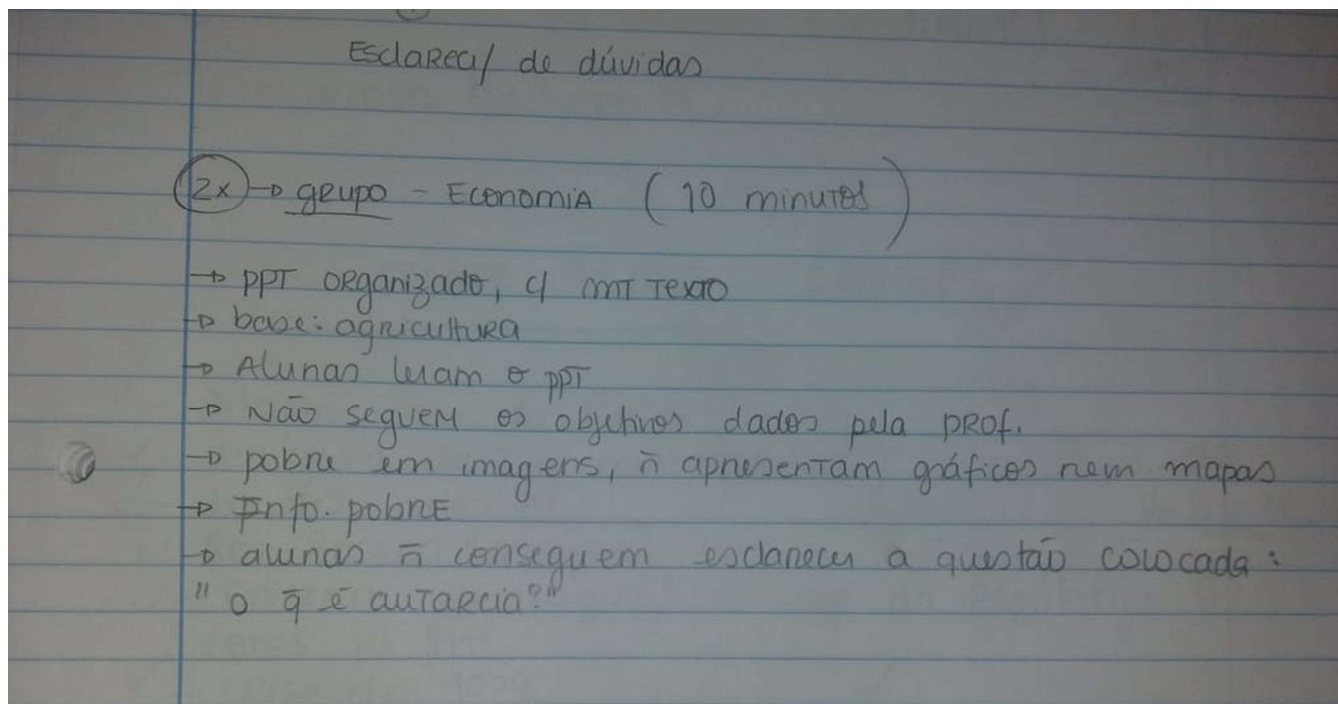 Esclareci/ de dúvidas
2x → grupo - Economia (10 minutos)
→ PPT organizado, c/ mt texto
→ base: agricultura
→ Alunas leram o PPT
→ Não seguem os objetivos dados pela prof.
→ pobre em imagens, ñ apresentam gráficos nem mapas
→ Info. pobre
→ alunas ñ conseguem esclarecer a questão colocada:
"o q̃ é autarcia?"